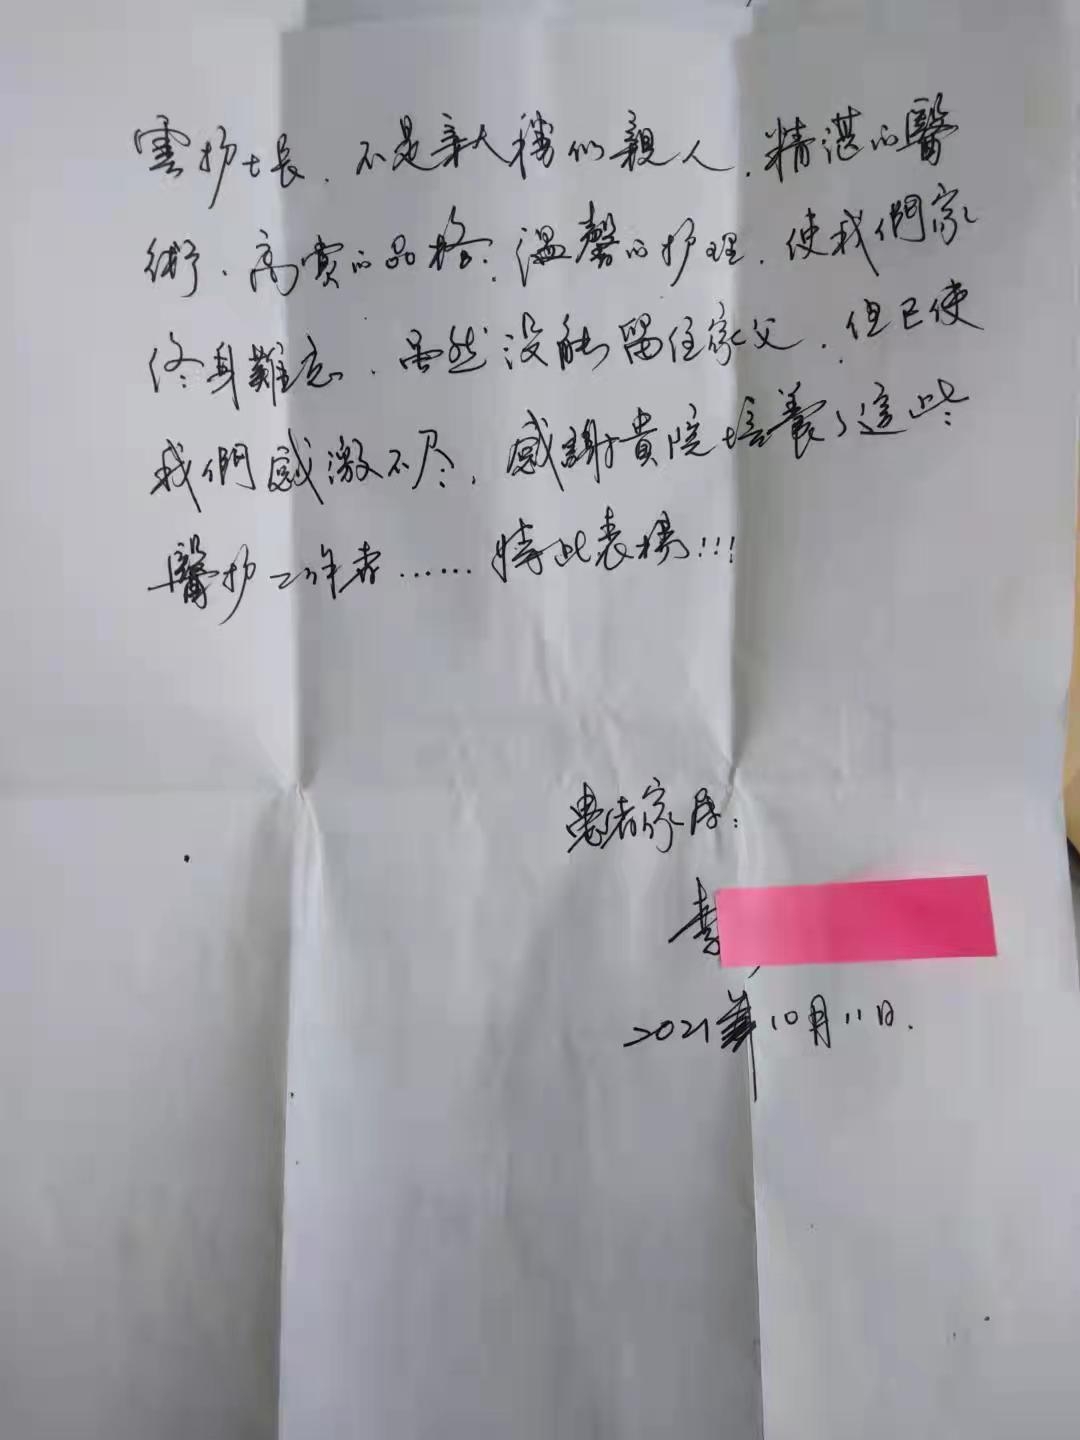 雲护士長，不是亲人勝似親人，精湛的醫
術、高赏的品格，溫馨的护理，使我們家
終身難忘，虽然没能留住家父，但已使
我們感激不尽，感謝貴院培養了這些
醫护工作者……特此表揚!!!
患者家属：
2021年10月11日.